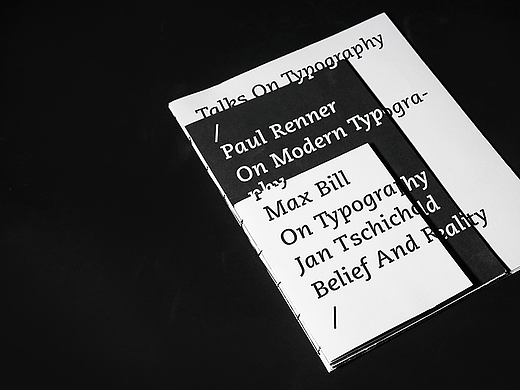 Talks On Typography
/
Paul Renner
On Modern Typogra-
phy
Max Bill
On Typography
Jan Tschichold
Belief And Reality
/